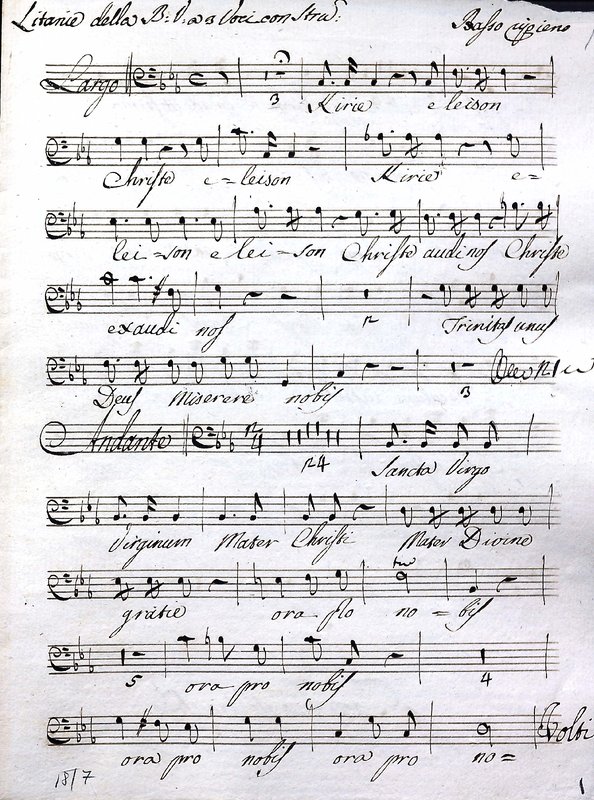 Litanie della B: V: a 3 Voci con Stru:
Basso ripieno
Largo
3
Kirie eleison
Christe e=leison Kirie e=
lei=son elei=son Christe audi nos Christe
exaudi nos Trinitas unus
2
Deus Miserere nobis
3
Andante 2/4
24
Sancta Virgo
Virginum Mater Christi Mater Divine
gratie ora pro no=bis
5 ora pro nobis 4
ora pro nobis ora pro no=
Volti
18/7
1